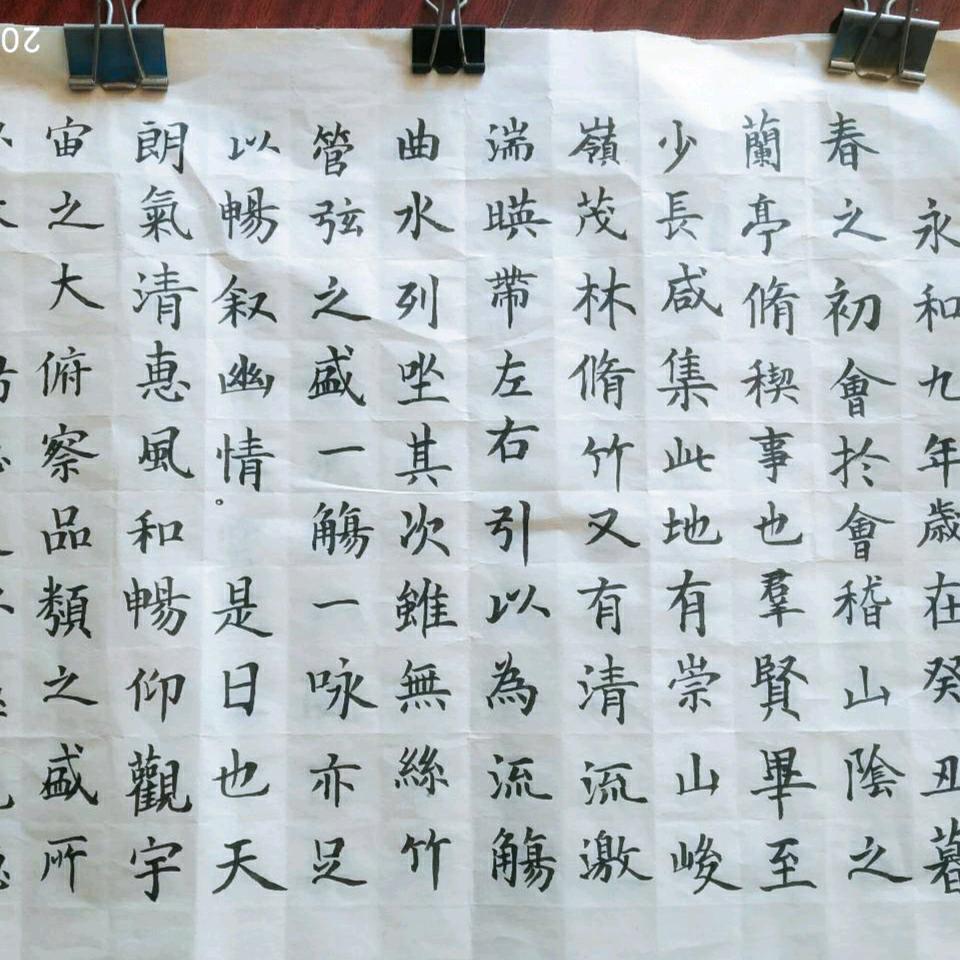 永和九年歲在癸丑暮
春之初會於會稽山陰之
蘭亭脩稧事也羣賢畢至
少長咸集此地有崇山峻
嶺茂林脩竹又有清流激
湍暎帶左右引以為流觴
曲水列坐其次雖無絲竹
管弦之盛一觴一咏亦足
以暢叙幽情。是日也天
朗氣清惠風和暢仰觀宇
宙之大俯察品類之盛所